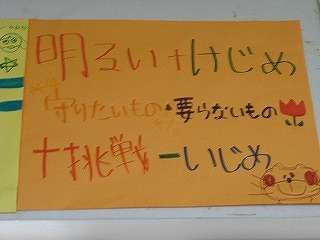 明るい+けじめ
守りたいもの・要らないもの
+挑戦-いじめ